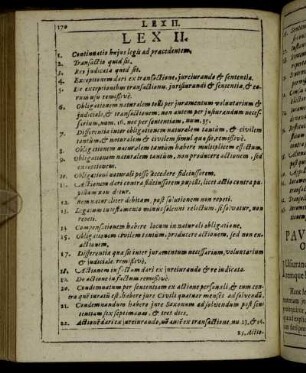 170 LEX II.
LEX II.
1. Continuatio hujus legis ad præcedentem.
2. Transactio quid sit.
3. Res judicata quid sit.
4. Exceptionem dari ex transactione, jurejurando & sententia.
5. De exceptionibus transactionum, jurisjurandi & sententiæ, & eorum usu remissivè.
6. Obligationem naturalem tolli per juramentum voluntarium &
judiciale, & transactionem, non autem per jusjurandum necessarium, num. 16. nec per sententiam, num. 35.
7. Differentia inter obligationem naturalem tantùm, & civilem
tantùm, & naturalem & civilem simul quoad, remissivè.
8. Obligationem naturalem tantùm habere multiplicem effectum.
9. Obligationem naturalem tantùm, non producere actionem, sed
exceptionem.
10. Obligationi naturali posse accedere fidejussorem.
11. Actionem dari contra fidejussorem pupilli, licet actio contra pupillum non detur.
12. debitum, post solutionem non repeti.
13. Legatum in testamento minus solenni relictum, si solvatur, non
repeti.
14. Compensationem habere locum in naturali obligatione.
15. Obligationem civilem tantùm producere actionem, sed non exactionem.
17. Differentia quæ sit inter juramentum necessarium, voluntarium
& judiciale, remissivè.
18. Actionem in factum dari ex jurejurando & re judicata.
19. De actione in factum remissivè.
20. Condemnatum per sententiam ex actione personali & eum contra quem juratum est, habere jure Civili quatuor menses ad solvendũ.
21. Condemnandum habere jure Saxonum ad solvendum post sententiam sex septimanas, & tres dies.
22. Actionẽ dari ex jurejurando, nõ autẽ ex transactione, nu. 23. & 26.
25. Actio-